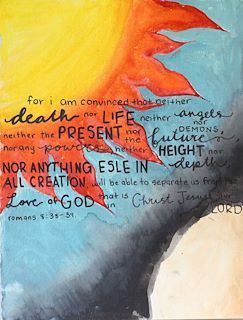 for i am convinced that neither
death nor LIFE neither angels
nor DEMONS,
neither the PRESENT nor the future
nor any powers neither HEIGHT nor depth,
NOR ANYTHING ESLE IN
ALL CREATION, will be able to separate us from the
Love of GOD that is in Christ Jesus our LORD
romans 8:38-39.